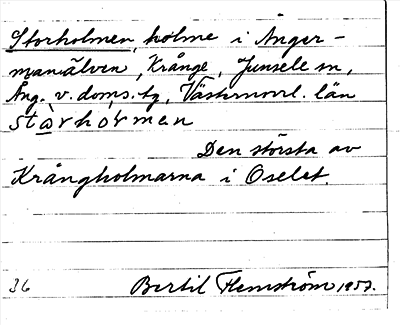 Storholmen, holme i Ånger-
manälven, Krånge, Junsele sn,
Ång. v. doms. tg, Västernorrl. län
stòrhòrmen
Den största av
Krångholmarna i Oselet.
36 Bertil Flemström 1957.